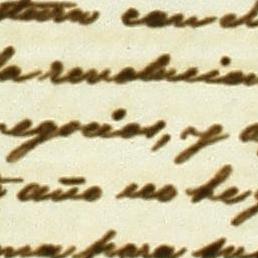 con el
la revolucion
negocios, y
año no he
para